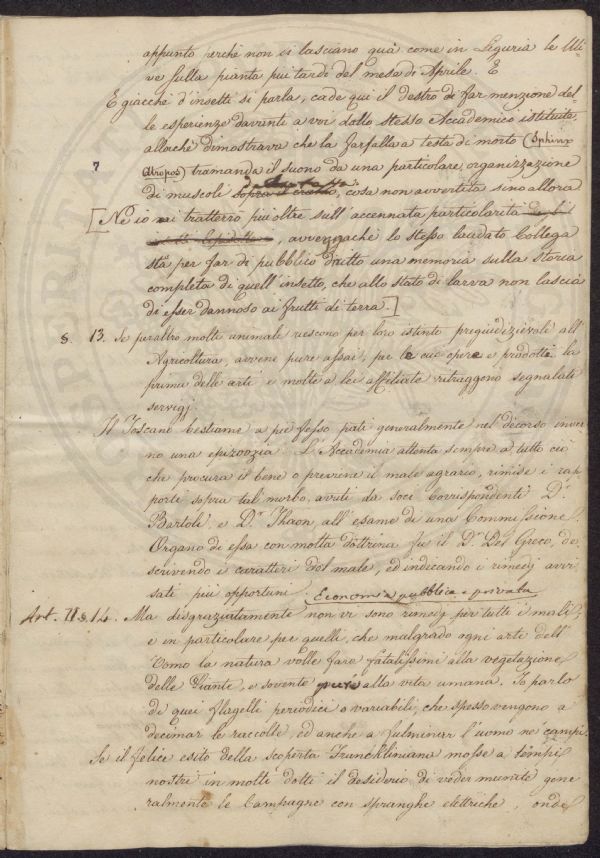 appunto perché non si lasciano quà come in Liguria le Uli-
ve sulla pianta più tardi del mese di Aprile. E
E giacchè d'insetti si parla, cade qui il destro di far menzione del-
le esperienze davanti a voi dallo stesso Accademico istituite,
allochè dimostrava che la farfalla a testa di morto (Sphinx
7 Atropos) tramanda il suono da una particolare organizzazione
di muscoli sopra il cranio, cosa non avvertita sino allora
[Nè io mi tratterrò più oltre sull'accennata particolarità degl'
insetti Lepidotteri, avvegnachè lo stesso laudato Collega
stà per far di pubblico dritto una memoria sulla storia
completa di quell'insetto, che allo stato di larva non lascia
di esser dannoso ai frutti di terra.]
8. 13. Se peraltro molti animali riescono per loro istinto pregiudizievoli all'
Agricoltura, avvene pure assai, per le cui opere e prodotti la
prima delle arti e molte a lei affiliate ritraggono segnalati
servigj.
Il Toscano bestiame a piè fesso patì generalmente nel decorso inver-
no una epizoozia. L'Accademia attenta sempre a tutto ciò
che procura il bene o previene il male agrario, rimise i rap-
porti sopra tal morbo, avuti da soci Corrispondenti Dr.
Bartoli, e Dr. Thaon, all'esame di una Commissione.
Organo di essa con molta dottrina fu il Dr. Del Greco, de-
scrivendo i caratteri del male, ed indicando i rimedj avvi-
sati più opportuni. Economia pubblica e privata
Art. II 8. 14. Ma disgraziatamente non vi sono rimedj per tutti i mali
e in particolare per quelli, che malgrado ogni arte dell'
Uomo la natura volle fare fatalissimi alla vegetazione
delle Piante, e sovente alla vita umana. Io parlo
di quei flagelli periodici o variabili, che spesso vengono a
decimar le raccolte, ed anche a fulminar l'uomo ne' campi.
Se il felice esito della scoperta Franckliniana mosse a tempi
nostri in molti dotti il desiderio di veder munite gene-
ralmente le Campagne con spranghe elettriche, onde